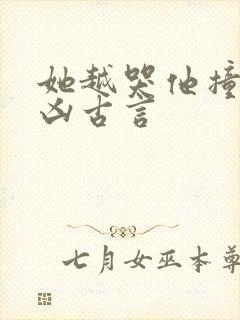 她越哭他撞
凶古言
七月女巫本尊